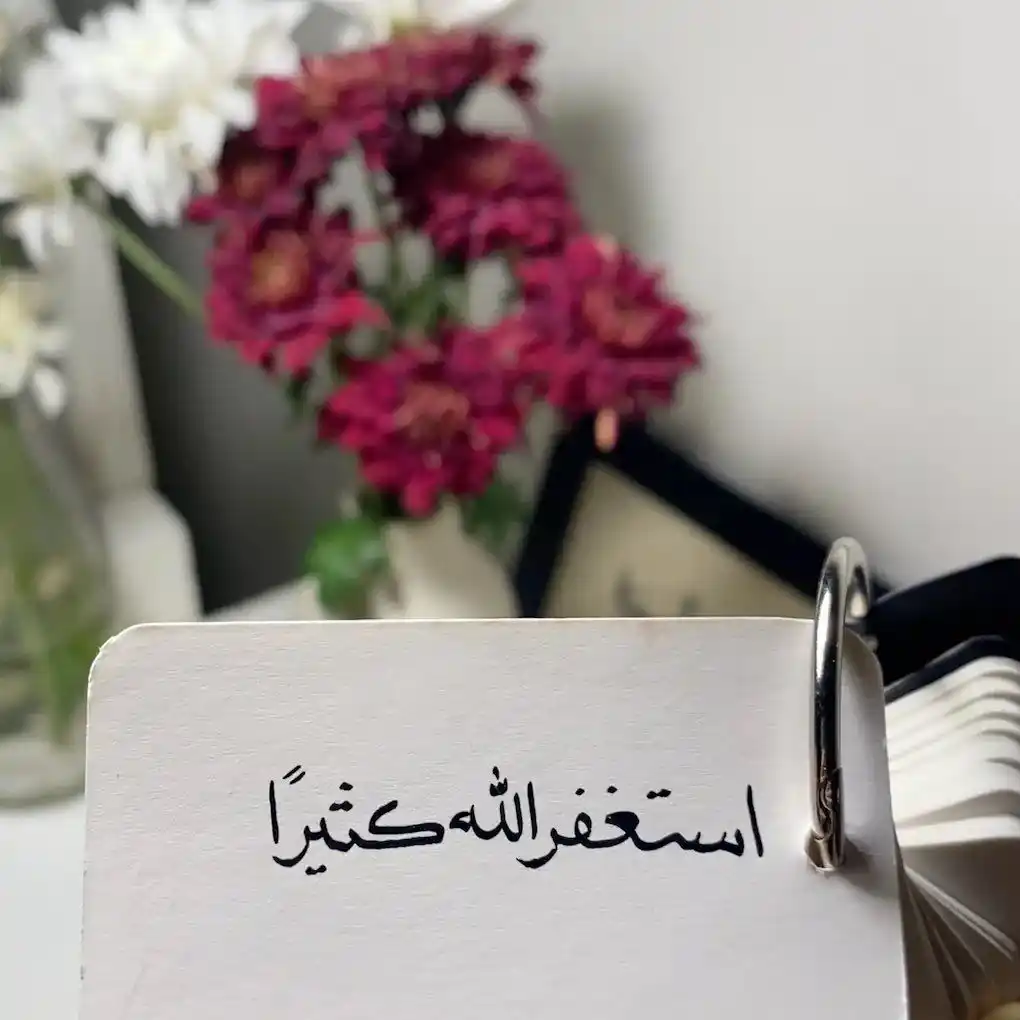 استغفر الله كثيرًا